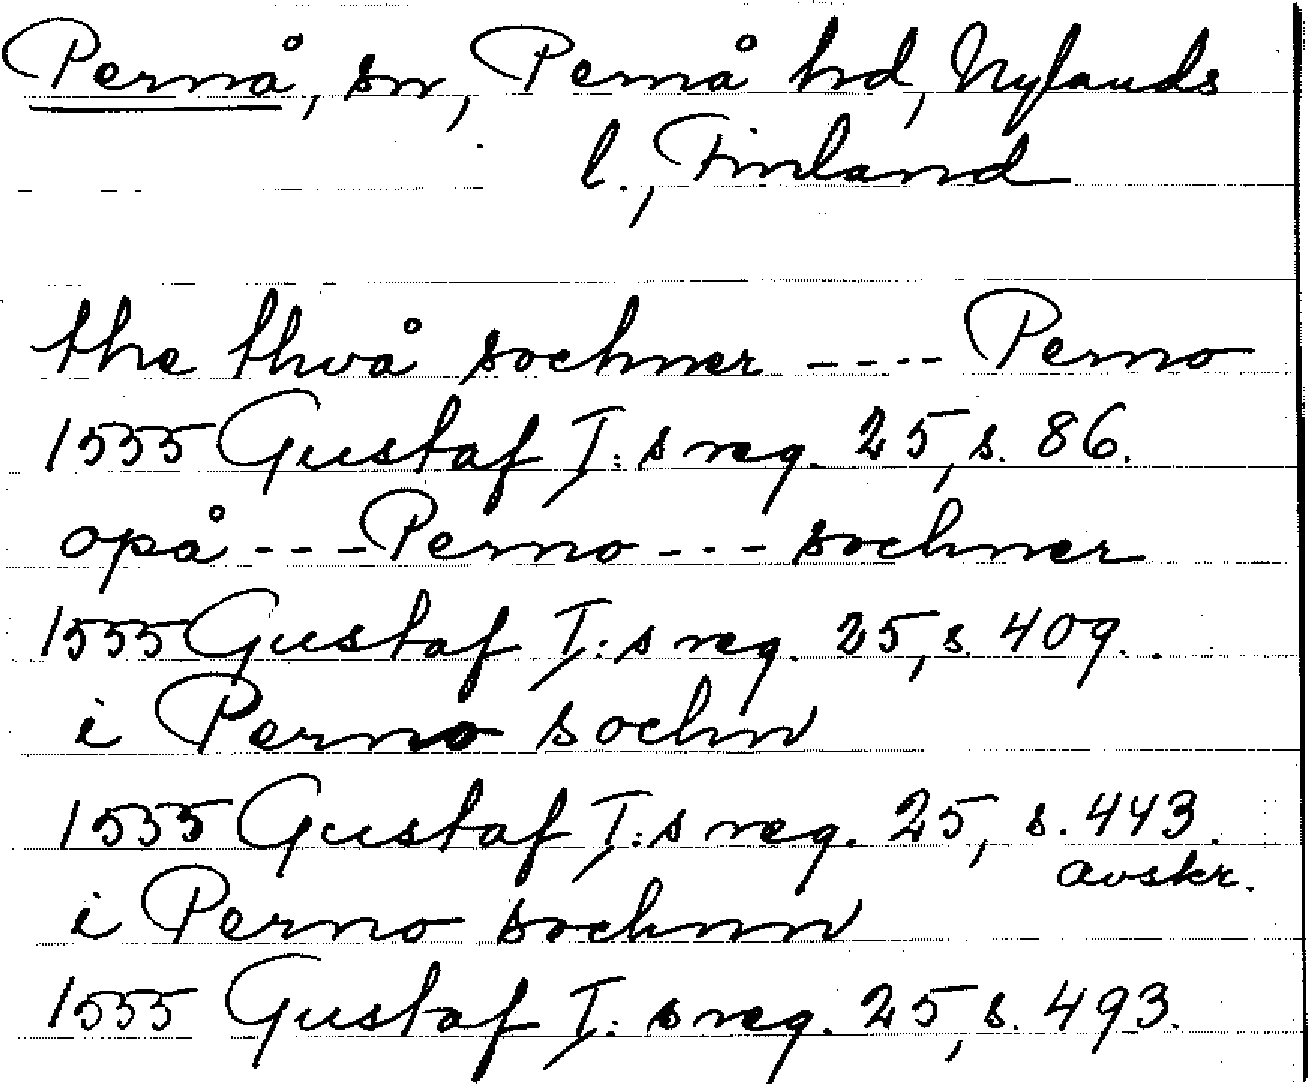 Pernå, sn, Pernå hd, Nylands
l., Finland
the thvå sochner ---- Perno
1555 Gustaf I:s reg. 25, s. 86.
opå --- Perno --- sochner
1555 Gustaf I:s reg. 25, s. 409.
i Perno sochn
1555 Gustaf I:s reg. 25, s. 443.
avskr.
i Perno sochnn
1555 Gustaf I:s reg. 25, s. 493.